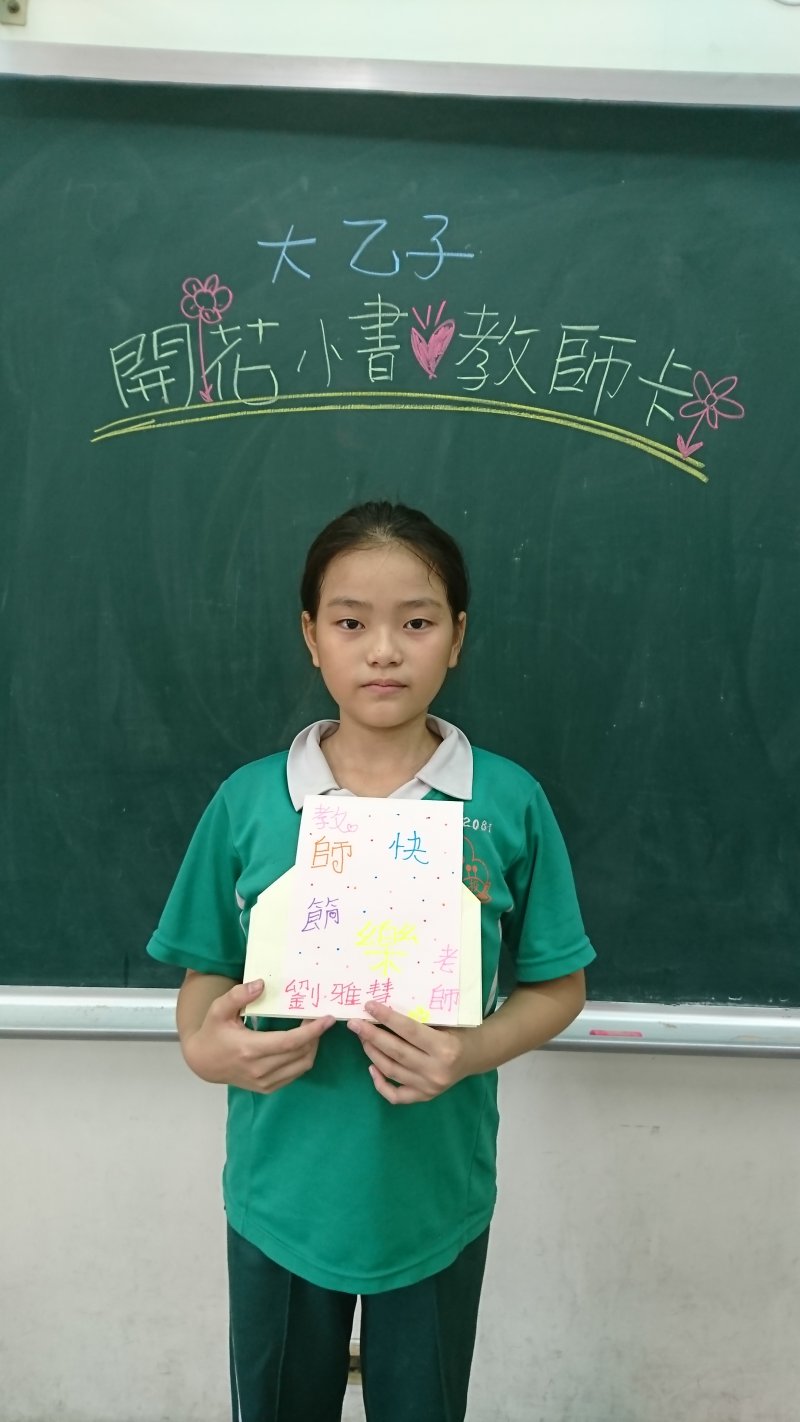 大乙子
開花小書教師卡
教師節
快樂
劉雅慧
老師